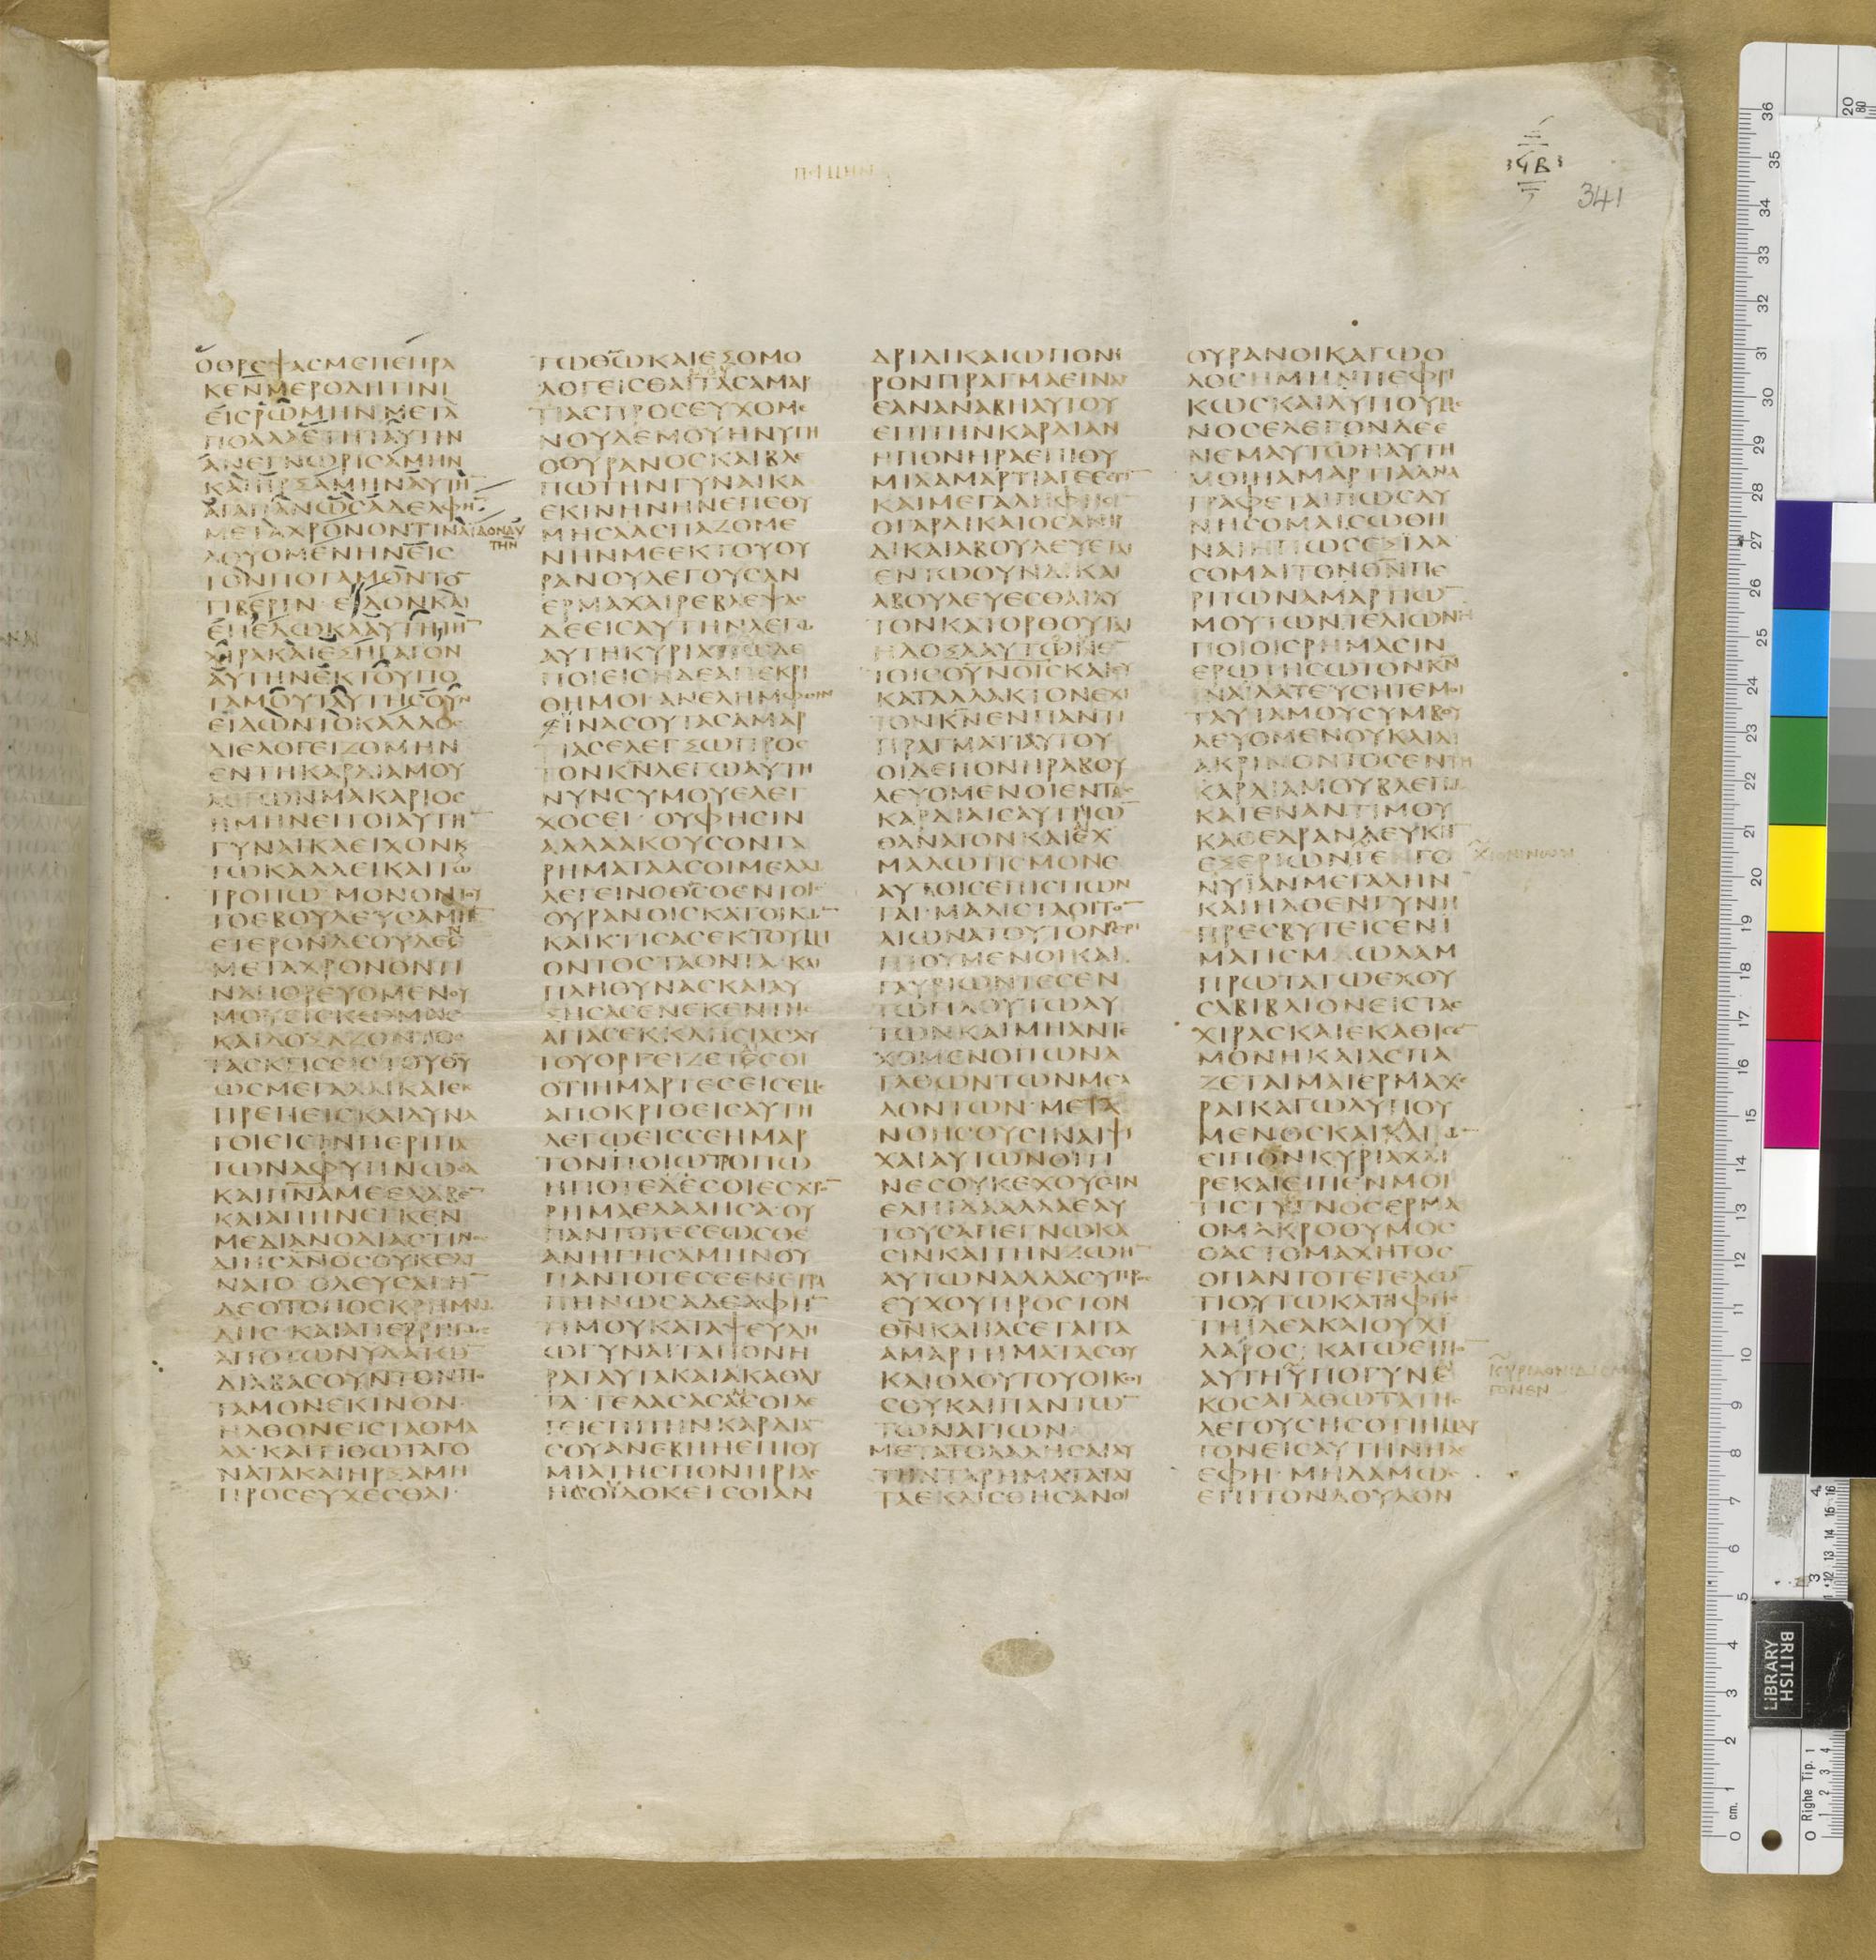 ΟΘΡΕΨΑCΜΕΠΕΠΡΑ
ΚΕΝΜΕΡΟΔΗΤΙΝΙ
ΕΙCΡΩΜΗΝΜΕΤΑ
ΠΟΛΛΑΕΤΗΤΑΥΤΗΝ
ΑΝΕΓΝΩΡΙCΑΜΗΝ
ΚΑΙΗΡΞΑΜΗΝΑΥΤΗ
ΑΓΑΠΑΝΩCΑΔΕΛΦΗ
ΜΕΤΑΧΡΟΝΟΝΤΙΝΑ
ΛΟΥΟΜΕΝΗΝΕΙC
ΤΟΝΠΟΤΑΜΟΝΤΟ
ΤΙΒΕΡΙΝ·ΕΙΔΟΝΚΑΙ
ΕΠΕΔΩΚΑΑΥΤΗΤΗ
ΧΙΡΑΚΑΙΕΞΗΓΑΓΟΝ
ΑΥΤΗΝΕΚΤΟΥΠΟ
ΤΑΜΟΥΤΑΥΤΗCΟΥ
ΕΙΔΩΝΤΟΚΑΛΛΟC
ΔΙΕΛΟΓΕΙΖΟΜΗΝ
ΕΝΤΗΚΑΡΔΙΑΜΟΥ
ΛΕΓΩΝΜΑΚΑΡΙΟC
ΗΜΗΝΕΙΤΟΙΑΥΤΗ
ΓΥΝΑΙΚΑΕΙΧΟΝΚ
ΤΩΚΑΛΛΕΙΚΑΙΤΩ
ΤΡΟΠΩ·ΜΟΝΟΝΤΟΥ
ΤΟΕΒΟΥΛΕΥCΑΜΗ
ΕΤΕΡΟΝΔΕΟΥΔΕΕ
ΜΕΤΑΧΡΟΝΟΝΤΙ
ΝΑΠΟΡΕΥΟΜΕΝΟΥ
ΜΟΥΕΙCΚΩΜΑC
ΚΑΙΔΟΞΑΖΟΝΤΟC
ΤΑCΚΤΙCΕΙCΤΟΥΘΥ
ΩCΜΕΓΑΛΑΙΚΑΙΕΚ
ΠΡΕΠΕΙCΚΑΙΔΥΝΑ
ΤΟΙΕΙCΙΝΠΕΡΙΠΑ
ΤΩΝΑΦΥΠΝΩCΑ
ΚΑΙΠΝΑΜΕΕΛΑΒΕ
ΚΑΙΑΠΗΝΕΓΚΕΝ
ΜΕΔΙΑΝΟΔΙΑCΤΙΝΟC
ΔΙΗCΑΝΟCΟΥΚΕΔΥ
ΝΑΤΟ ΟΔΕΥCΑΙΗ
ΔΕΟΤΟΠΟCΚΡΗΜΝΩ
ΔΗC·ΚΑΙΑΠΕΡΡΗΓΩC
ΑΠΟΤΩΝΥΔΑΤΩ
ΔΙΑΒΑCΟΥΝΤΟΝΠΟ
ΤΑΜΟΝΕΚΙΝΟΝ·
ΗΛΘΟΝΕΙCΤΑΟΜΑ
ΛΑ·ΚΑΙΤΙΘΩΤΑΓΟ
ΝΑΤΑΚΑΙΗΡΞΑΜΗ
ΠΡΟCΕΥΧΕCΘΑΙ·
ΤΩΘΩΚΑΙΕΞΟΜΟ
ΛΟΓΕΙCΘΑΙΤΑCΑΜΑΡ
ΤΙΑCΠΡΟCΕΥΧΟΜΕ
ΝΟΥΔΕΜΟΥΗΝΥΓΗ
ΟΟΥΡΑΝΟCΚΑΙΒΛΕ
ΠΩΤΗΝΓΥΝΑΙΚΑ
ΕΚΙΝΗΝΗΝΕΠΕΘΥ
ΜΗCΑΑCΠΑΖΟΜΕ
ΝΗΝΜΕΕΚΤΟΥΟΥ
ΡΑΝΟΥΛΕΓΟΥCΑΝ
ΕΡΜΑΧΑΙΡΕΒΛΕΨΑC
ΔΕΕΙCΑΥΤΗΝΛΕΓΩ
ΑΥΤΗΚΥΡΙΑΤΙCΩΔΕ
ΠΟΙΕΙCΗΔΕΑΠΕΚΡΙ
ΘΗΜΟΙΑΝΕΛΗΜΦΘΗΝ
ΪΝΑCΟΥΤΑCΑΜΑΡ
ΤΙΑCΕΛΕΓΞΩΠΡΟC
ΤΟΝΚΝΛΕΓΩΑΥΤΗ
ΝΥΝCΥΜΟΥΕΛΕΓ
ΧΟCΕΙ·ΟΥΦΗCΙΝ
ΑΛΛΑΑΚΟΥCΟΝΤΑ
ΡΗΜΑΤΑΑCΟΙΜΕΛΛΩ
ΛΕΓΕΙΝΟΘCΟΕΝΤΟΙC
ΟΥΡΑΝΟΙCΚΑΤΟΙΚΩ
ΚΑΙΚΤΙCΑCΕΚΤΟΥΜΗ
ΟΝΤΟCΤΑΟΝΤΑ·ΚΑΙ
ΠΛΗΘΥΝΑCΚΑΙΑΥ
ΞΗCΑCΕΝΕΚΕΝΤΗC
ΑΓΙΑCΕΚΚΛΗCΙΑCΑΥ
ΤΟΥΟΡΓΕΙΖΕΤΕCΟΙ
ΟΤΙΗΜΑΡΤΕCΕΙCΕΜΕ
ΑΠΟΚΡΙΘΕΙCΑΥΤΗ
ΛΕΓΩΕΙCCΕΗΜΑΡ
ΤΟΝΠΟΙΩΤΡΟΠΩ
ΗΠΟΤΕΑΕCΟΙΕCΧΡΟ
ΡΗΜΑΕΛΑΛΗCΑ·ΟΥ
ΠΑΝΤΟΤΕCΕΩCΘΕ
ΑΝΗΓΗCΑΜΗΝΟΥ
ΠΑΝΤΟΤΕCΕΕΝΕΤΡΑ
ΠΗΝΩCΑΔΕΛΦΗ
ΤΙΜΟΥΚΑΤΑΨΕΥΔΗ
ΩΓΥΝΑΙΤΑΠΟΝΗ
ΡΑΤΑΥΤΑΚΑΙΑΚΑΘΑΡ
ΤΑ·ΓΕΛΑCΑCΑΕCΟΙΛΕ
ΓΕΙΕΠΙΤΗΝΚΑΡΔΙΑ
CΟΥΑΝΕΒΗΗΕΠΙΘΥ
ΜΙΑΤΗCΠΟΝΗΡΙΑC
ΗCΟΥΔΟΚΕΙCΟΙΑΝ
ΔΡΙΔΙΚΑΙΩΠΟΝΗ
ΡΟΝΠΡΑΓΜΑΕΙΝΑΙ
ΕΑΝΑΝΑΒΗΑΥΤΟΥ
ΕΠΙΤΗΝΚΑΡΔΙΑΝ
ΗΠΟΝΗΡΑΕΠΙΘΥ
ΜΙΑΑΜΑΡΤΙΑΓΕΕCΤΙ
ΚΑΙΜΕΓΑΛΗΦΗCΙ
ΟΓΑΡΔΙΚΑΙΟCΑΝΗΡ
ΔΙΚΑΙΑΒΟΥΛΕΥΕΤΑΙ
ΕΝΤΩΟΥΝΔΙΚΑΙ
ΑΒΟΥΛΕΥΕCΘΑΙΑΥ
ΤΟΝΚΑΤΟΡΘΟΥΤΑΙ
ΗΔΟΞΑΑΥΤΟΥΕΝ
ΤΟΙCΟΥΝΟΙCΚΑΙΕΥ
ΚΑΤΑΛΛΑΚΤΟΝΕΧΙ
ΤΟΝΚΝΕΝΠΑΝΤΙ
ΠΡΑΓΜΑΤΙΑΥΤΟΥ
ΟΙΔΕΠΟΝΗΡΑΒΟΥ
ΛΕΥΟΜΕΝΟΙΕΝΤΑΙC
ΚΑΡΔΙΑΙCΑΥΤΩ
ΘΑΝΑΤΟΝΚΑΙΕΧ
ΜΑΛΩΤΙCΜΟΝΕ
ΑΥΤΟΙCΕΠΙCΠΩΝ
ΤΑΙ·ΜΑΛΙCΤΑΟΙΤΟ
ΑΙΩΝΑΤΟΥΤΟΝΠΕΡΙ
ΠΟΙΟΥΜΕΝΟΙΚΑΙ
ΓΑΥΡΙΩΝΤΕCΕΝ
ΤΩΠΛΟΥΤΩΑΥ
ΤΩΝΚΑΙΜΗΑΝΤΕ
ΧΟΜΕΝΟΙΤΩΝΑ
ΓΑΘΩΝΤΩΝΜΕΛ
ΛΟΝΤΩΝ·ΜΕΤΑ
ΝΟΗCΟΥCΙΝΑΙΨΥ
ΧΑΙΑΥΤΩΝΟΙΤΙ
ΝΕCΟΥΚΕΧΟΥCΙΝ
ΕΛΠΙΔΑΑΛΛΑΕΑΥ
ΤΟΥCΑΠΕΓΝΩΚΑ
CΙΝΚΑΙΤΗΝΖΩΗ
ΑΥΤΩΝΑΛΛΑCΥΠΡΟC
ΕΥΧΟΥΠΡΟCΤΟΝ
ΘΝΚΑΙΙΑCΕΤΑΙΤΑ
ΑΜΑΡΤΗΜΑΤΑCΟΥ
ΚΑΙΟΛΟΥΤΟΥΟΙΚΟΥ
CΟΥΚΑΙΠΑΝΤΩ
ΤΩΝΑΓΙΩΝ
ΜΕΤΑΤΟΛΑΛΗCΑΙΑΥ
ΤΗΝΤΑΡΗΜΑΤΑΤΑΥ
ΤΑΕΚΛΙCΘΗCΑΝΟΙ
ΟΥΡΑΝΟΙΚΑΓΩΟ
ΛΟCΗΜΗΝΠΕΦΡΙ
ΚΩCΚΑΙΛΥΠΟΥΜΕ
ΝΟCΕΛΕΓΟΝΔΕΕ
ΝΕΜΑΥΤΩΗΑΥΤΗ
ΜΟΙΗΑΜΑΡΤΙΑΑΝΑ
ΓΡΑΦΕΤΑΙΠΩCΔΥ
ΝΗCΟΜΑΙCΩΘΗ
ΝΑΙΗΠΩCΕΞΙΛΑ
CΟΜΑΙΤΟΝΘΝΠΕ
ΡΙΤΩΝΑΜΑΡΤΙΩ
ΜΟΥΤΩΝΤΕΛΙΩΝΗ
ΠΟΙΟΙCΡΗΜΑCΙΝ
ΕΡΩΤΗCΩΤΟΝΚΝ
ΙΝΑΙΛΑΤΕΥCΗΤΕΜΟΙ
ΤΑΥΤΑΜΟΥCΥΜΒΟΥ
ΛΕΥΟΜΕΝΟΥΚΑΙΔΙ
ΑΚΡΙΝΟΝΤΟCΕΝΤΗ
ΚΑΡΔΙΑΜΟΥΒΛΕΠΩ
ΚΑΤΕΝΑΝΤΙΜΟΥ
ΚΑΘΕΔΡΑΝΛΕΥΚΗ
ΕΞΕΡΙΩΝΓΕΓΟ
ΝΥΙΑΝΜΕΓΑΛΗΝ
ΚΑΙΗΛΘΕΝΓΥΝΗ
ΠΡΕCΒΥΤΕΙCΕΝΙ
ΜΑΤΙCΜΩΛΑΜ
ΠΡΩΤΑΤΩΕΧΟΥ
CΑΒΙΒΛΙΟΝΕΙCΤΑC
ΧΙΡΑCΚΑΙΕΚΑΘΙCΕ
ΜΟΝΗΚΑΙΑCΠΑ
ΖΕΤΑΙΜΑΙΕΡΜΑΧΕ
ΡΑΙΚΑΓΩΛΥΠΟΥ
ΜΕΝΟCΚΑΙΚΛΑΙΩ
ΕΙΠΟΝΚΥΡΙΑΧΑΙ
ΡΕΚΑΙΕΙΠΕΝΜΟΙ
ΤΙCΤΥΓΝΟCΕΡΜΑ
ΟΜΑΚΡΟΘΥΜΟC
ΟΑCΤΟΜΑΧΗΤΟC
ΟΠΑΝΤΟΤΕΓΕΛΩ
ΤΙΟΥΤΩΚΑΤΗΦΗC
ΤΗΙΔΕΑΚΑΙΟΥΧΙ
ΛΑΡΟC;ΚΑΓΩΕΙΠΟ
ΑΥΤΗΫΠΟΓΥΝΕ
ΚΟCΑΓΑΘΩΤΑΤΗC
ΛΕΓΟΥCΗCΟΤΙΗΜΑΡ
ΤΟΝΕΙCΑΥΤΗΝΗΔΕ
ΕΦΗ·ΜΗΔΑΜΩC
ΕΠΙΤΟΝΔΟΥΛΟΝ
341